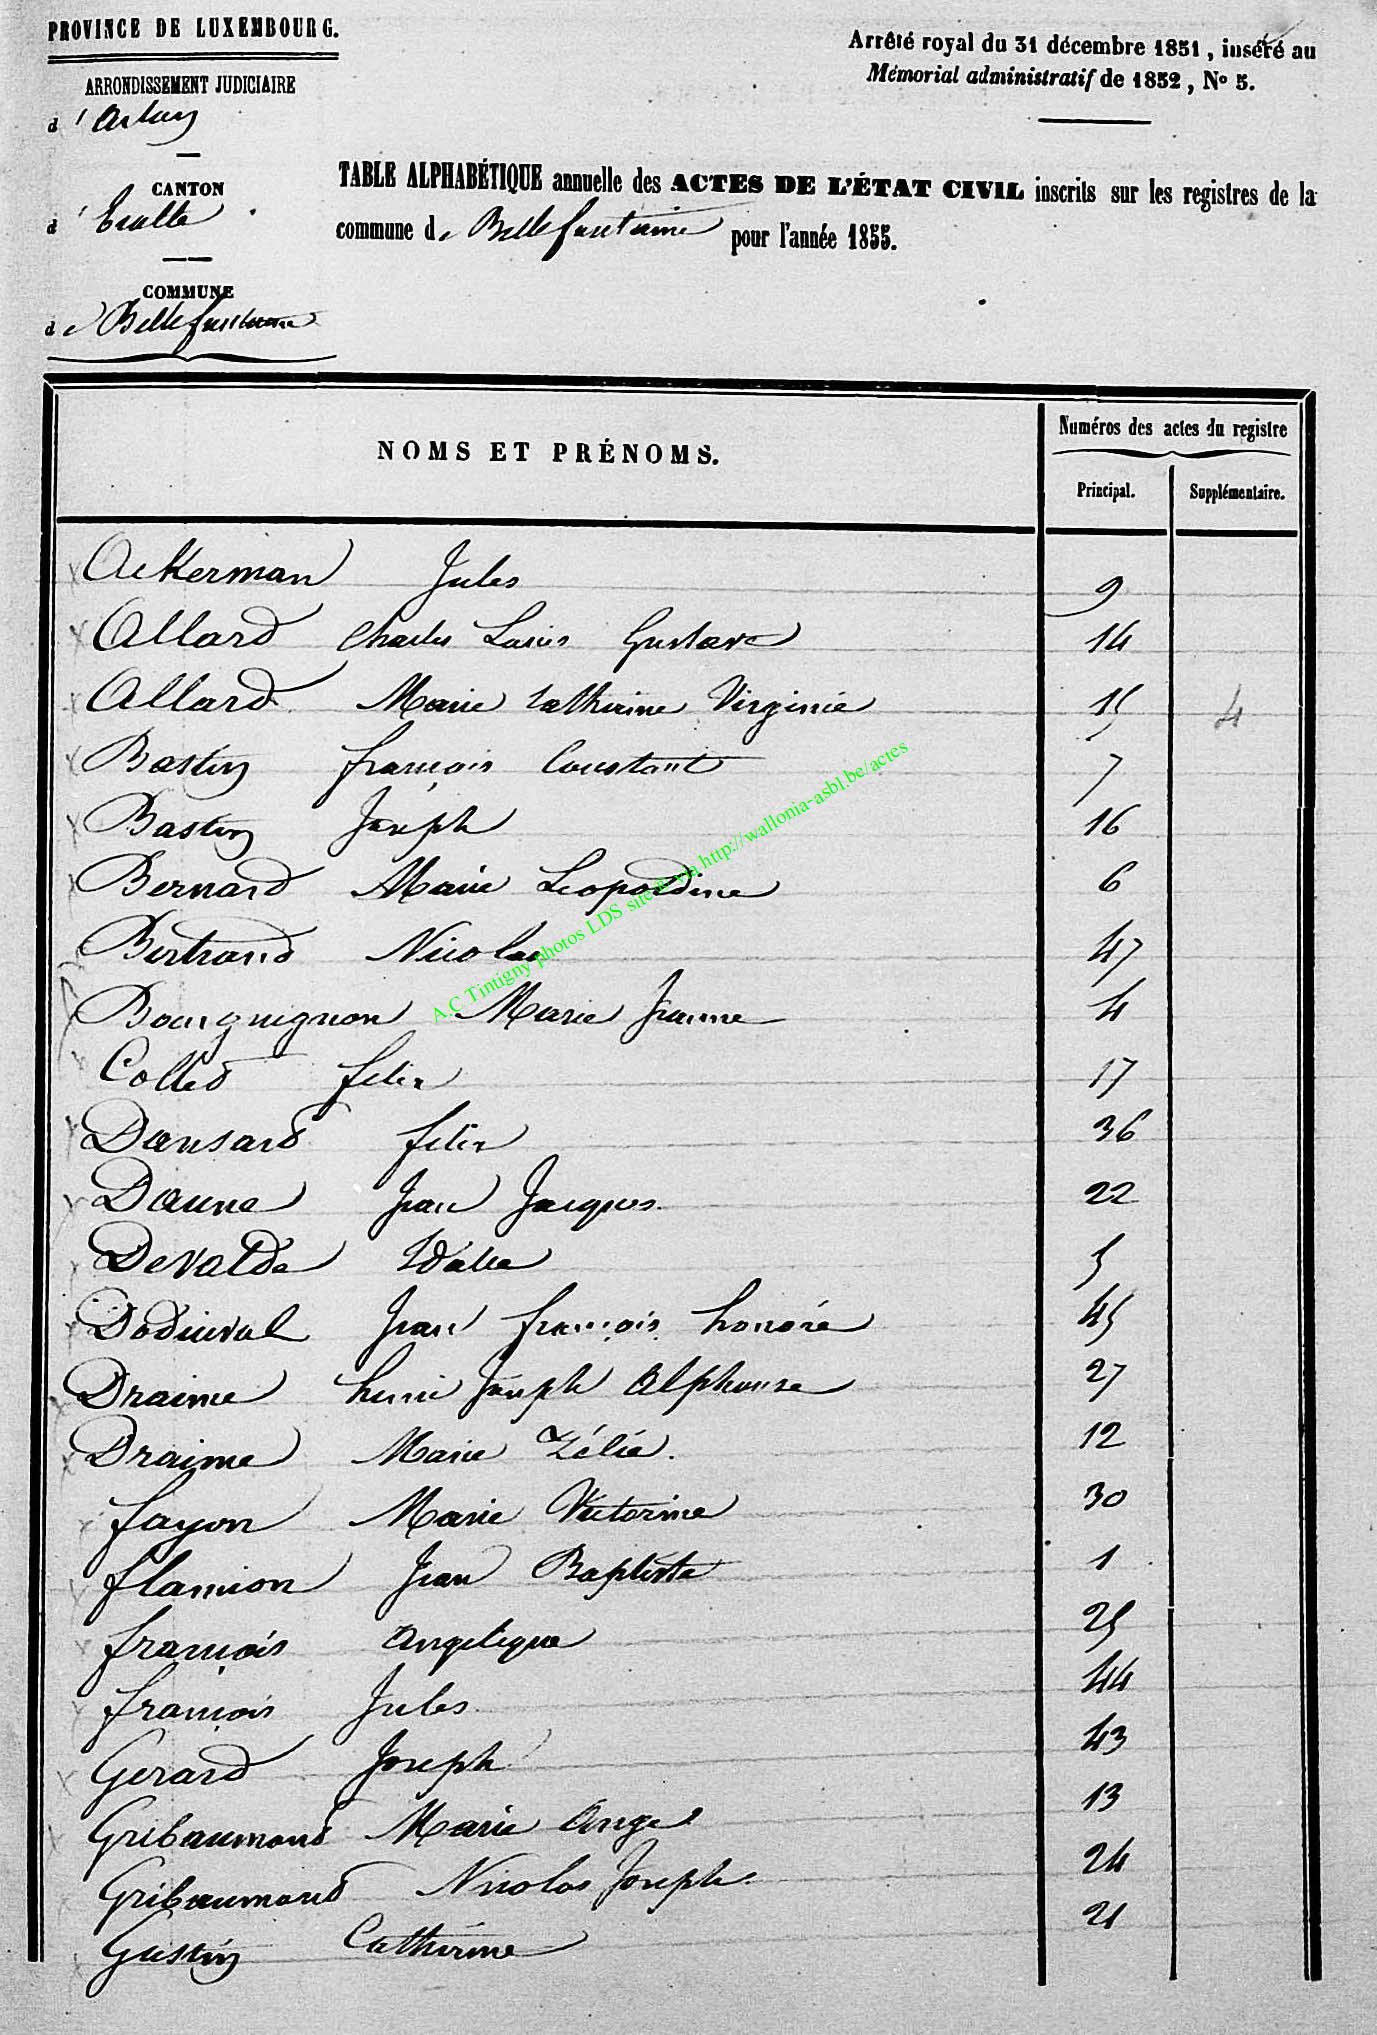 PROVINCE DE LUXEMBOURG.
ARRONDISSEMENT JUDICIAIRE
d'Arlon
CANTON
d'Etalle
COMMUNE
de Bellefontaine
Arrêté royal du 31 décembre 1851, inséré au
Mémorial administratif de 1852, No 5.
TABLE ALPHABÉTIQUE annuelle des ACTES DE L'ÉTAT CIVIL inscrits sur les registres de la
commune de Bellefontaine pour l'année 1855.
NOMS ET PRÉNOMS. Numéros des actes du registre
Principal. Supplémentaire.
Ackerman Jules 9
Allard Charles Louis Gustave 14
Allard Marie Catherine Virginie 15 4
Bastin françois Constant 7
Bastin Joseph 16
Bernard Marie Leopoldine 6
Bertrand Nicolas 47
Bourguignon Marie Jeanne 4
Colled felix 17
Dansard felix 36
Daune Jean Jacques 22
Devalde Idalie 5
Dodinval Jean françois honoré 45
Draime henri Joseph Alphonse 27
Draime Marie Zélie. 12
fayon Marie Victorine 30
flamion Jean Baptiste 1
françois Angelique 25
françois Jules 44
Gerard Joseph 43
Gribaumond Marie Ange 13
Gribaumond Nicolas Joseph 24
Gustin Catherine 21
A.C Tintigny photos LDS site via http://wallonia-asbl.be/actes